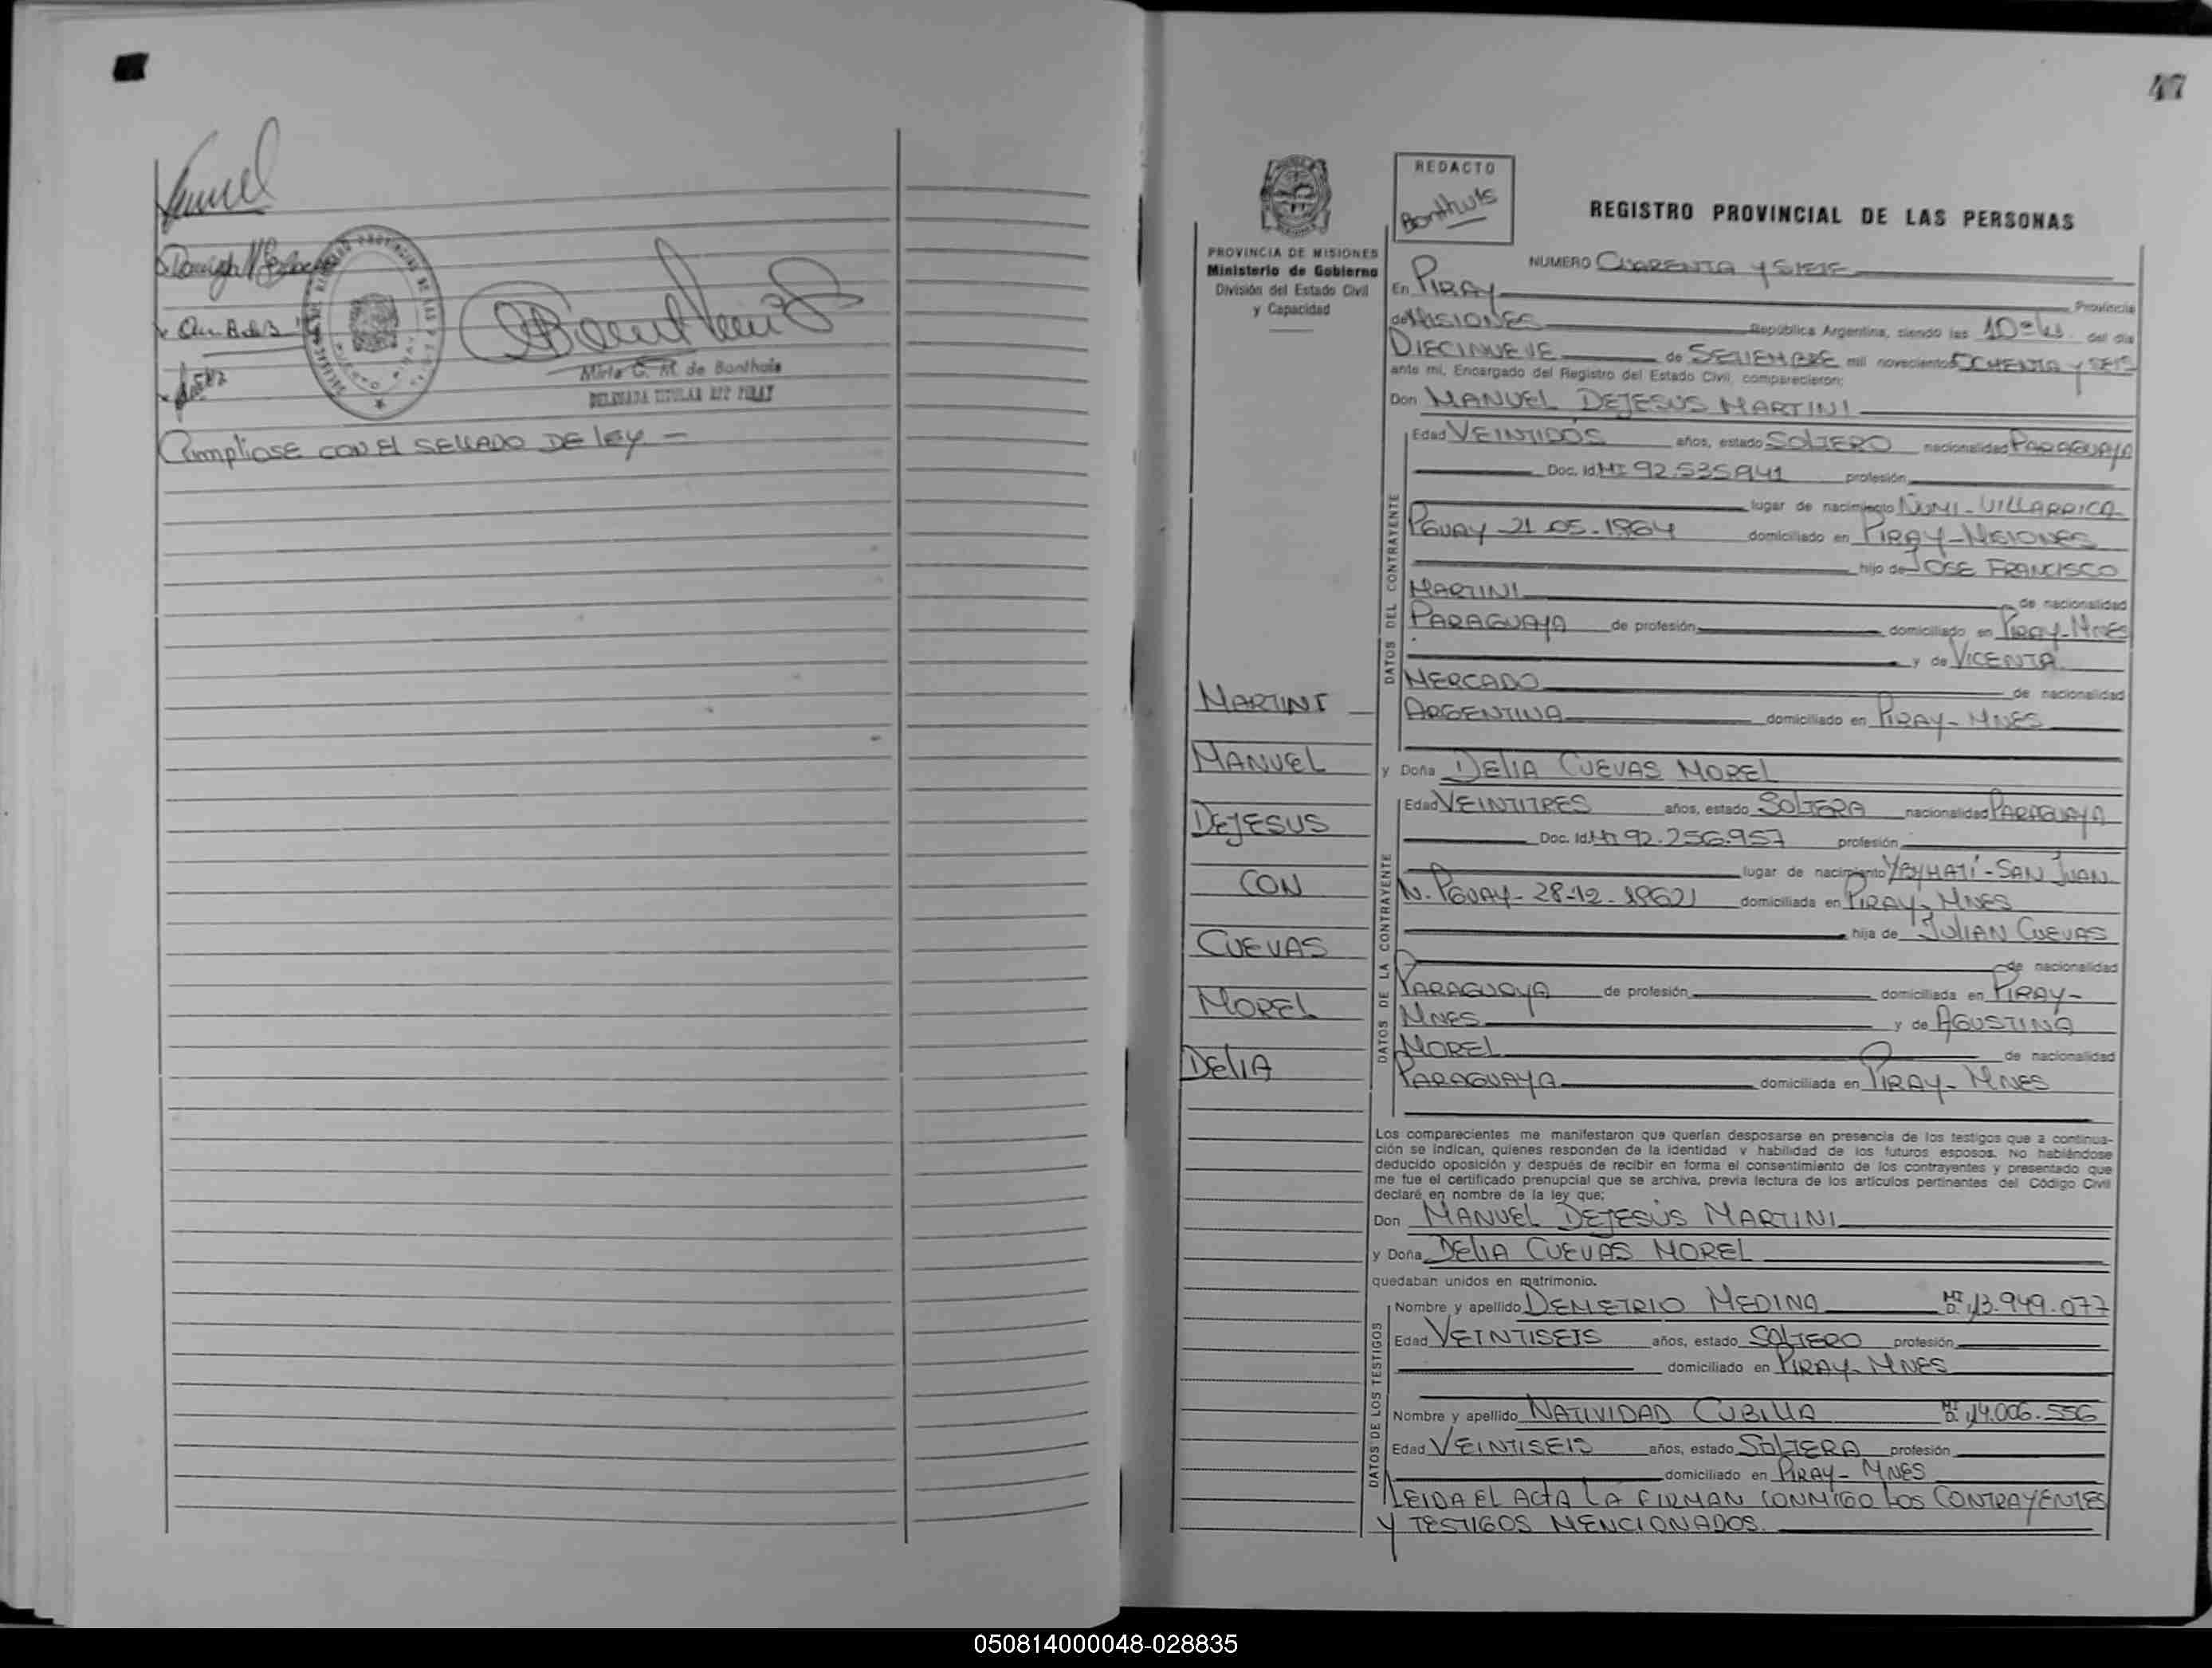 Cumpliose con el sellado de ley -
Mirta G. M. de Bonthuis
DELEGADA TITULAR RPP PIRAY
47
PROVINCIA DE MISIONES
Ministerio de Gobierno
División del Estado Civil
y Capacidad
REDACTO
Bonthuis
REGISTRO PROVINCIAL DE LAS PERSONAS
NUMERO CUARENTA Y SIETE
En PIRAY Provincia
de MISIONES República Argentina, siendo las 10 hs. del día
DIECINUEVE de SETIEMBRE mil novecientos OCHENTA Y SEIS
ante mi, Encargado del Registro del Estado Civil, comparecieron:
Don MANUEL DEJESUS MARTINI
DATOS DEL CONTRAYENTE
Edad VEINTIDOS años, estado SOLTERO nacionalidad PARAGUAYA
Doc. Id. MI 92.535.941 profesión
lugar de nacimiento ÑUMI - VILLARRICA
PGUAY - 21.05.1964 domiciliado en PIRAY - MISIONES
hijo de JOSE FRANCISCO
MARTINI de nacionalidad
PARAGUAYA de profesión domiciliado en PIRAY - MNES
y de VICENTA
MERCADO de nacionalidad
ARGENTINA domiciliado en PIRAY - MNES
y Doña DELIA CUEVAS MOREL
DATOS DE LA CONTRAYENTE
Edad VEINTITRES años, estado SOLTERA nacionalidad PARAGUAYA
Doc. Id. MI 92.256.957 profesión
lugar de nacimiento YBYHATÍ - SAN JUAN
N. PGUAY - 28-12-1962 domiciliada en PIRAY - MNES
hija de JULIAN CUEVAS
de nacionalidad
PARAGUAYA de profesión domiciliada en PIRAY -
MNES y de AGUSTINA
MOREL de nacionalidad
PARAGUAYA domiciliada en PIRAY - MNES
MARTINI
MANUEL
DEJESUS
CON
CUEVAS
MOREL
DELIA
Los comparecientes me manifestaron que querían desposarse en presencia de los testigos que a continua-
ción se indican, quienes responden de la identidad y habilidad de los futuros esposos. No habiéndose
deducido oposición y después de recibir en forma el consentimiento de los contrayentes y presentado que
me fue el certificado prenupcial que se archiva, previa lectura de los artículos pertinentes del Código Civil
declaré en nombre de la ley que;
Don MANUEL DEJESÚS MARTINI
y Doña DELIA CUEVAS MOREL
quedaban unidos en matrimonio.
DATOS DE LOS TESTIGOS
Nombre y apellido DEMETRIO MEDINA MI D. 13.949.077
Edad VEINTISEIS años, estado SOLTERO profesión
domiciliado en PIRAY - MNES
Nombre y apellido NATIVIDAD CUBILLA MI D. 14.006.556
Edad VEINTISEIS años, estado SOLTERA profesión
domiciliado en PIRAY - MNES
LEIDA EL ACTA LA FIRMAN CONMIGO LOS CONTRAYENTES
Y TESTIGOS MENCIONADOS.
050814000048-028835